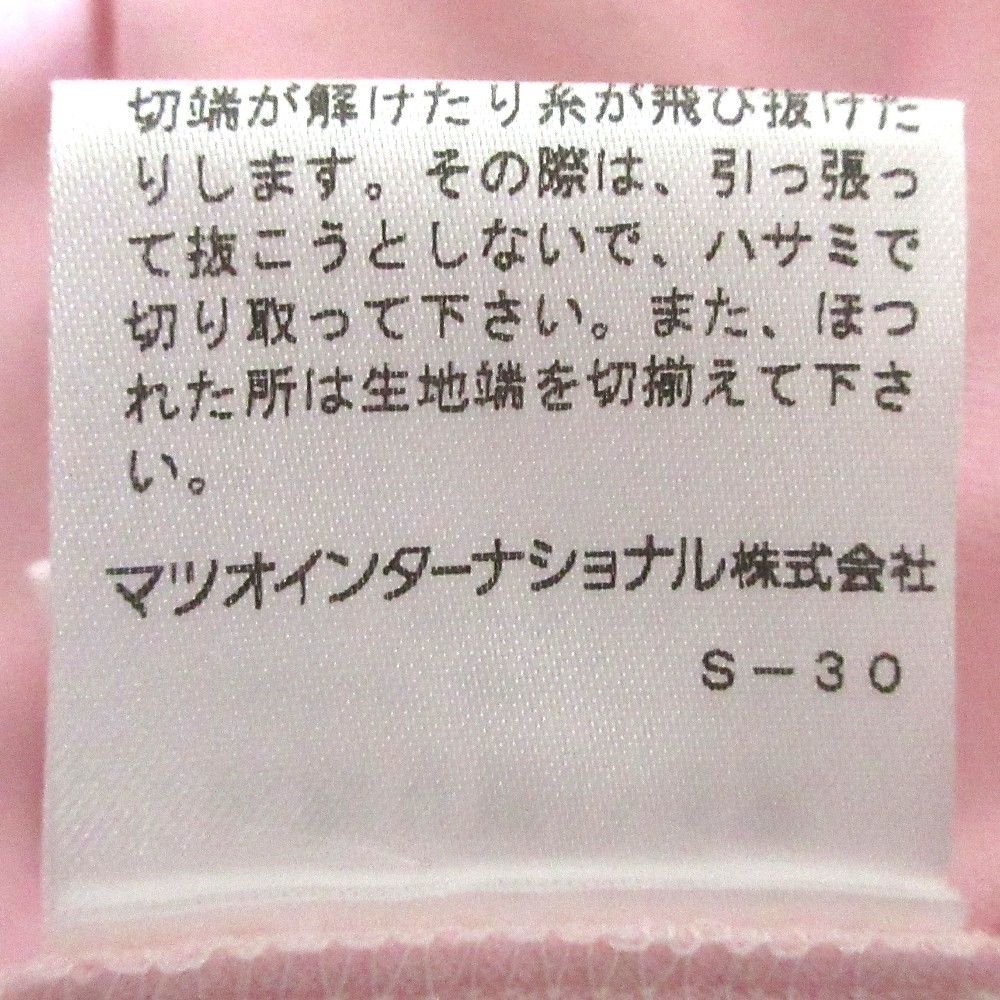 切端が解けたり糸が飛び抜けた
りします。その際は、引っ張っ
て抜こうとしないで、ハサミで
切り取って下さい。また、ほつ
れた所は生地端を切揃えて下さ
い。
マツオインターナショナル株式会社
S-30